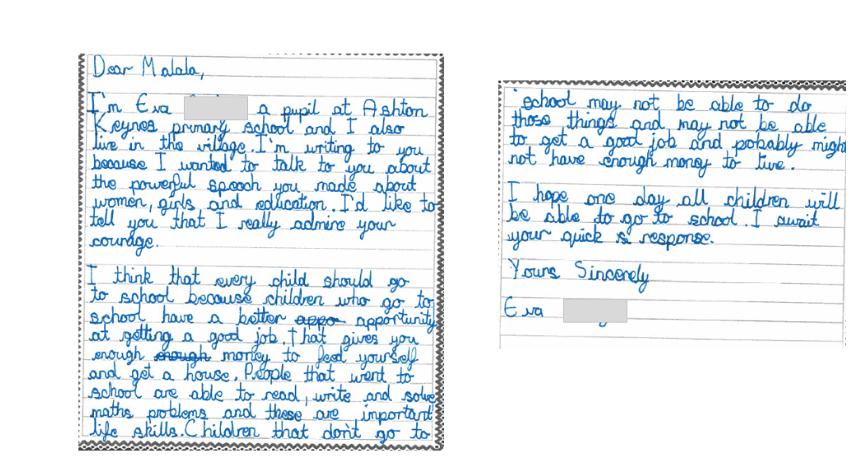 Dear Malala,
I'm Eva a pupil at Ashton
Keynes primary school and I also
live in the village. I'm writing to you
because I wanted to talk to you about
the powerful speech you made about
women, girls and education. I'd like to
tell you that I really admire your
courage.
I think that every child should go
to school because children who go to
school have a better appo opportunity
at getting a good job. That gives you
enough enough money to feed yourself
and get a house. People that went to
school are able to read, write and solve
maths problems and these are important
life skills. Children that don't go to
school may not be able to do
those things and may not be able
to get a good job and probably might
not have enough money to live.
I hope one day all children will
be able to go to school. I await
your quick response.
Yours Sincerely
Eva